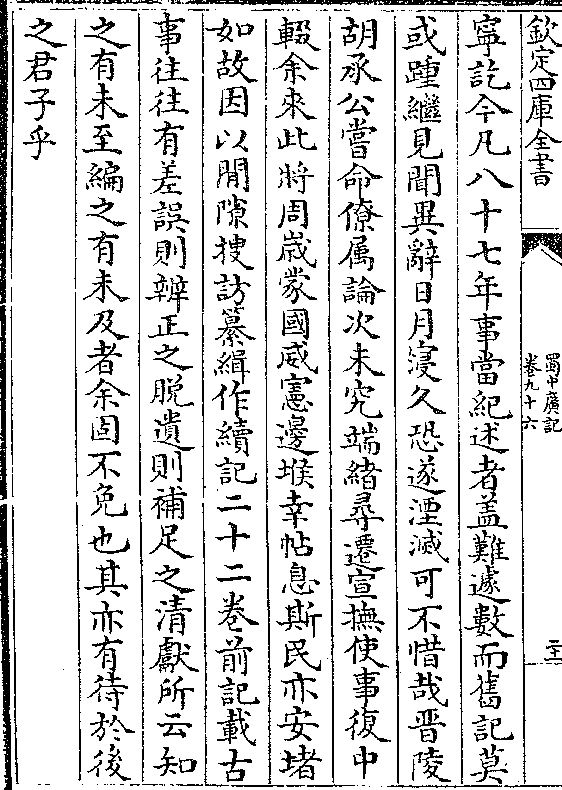 欽定四庫全書
蜀中廣記
卷九十六
二十一
寧訖今凡八十七年事當紀述者盖難遽數而舊記莫
或踵繼見聞異辭日月寖久恐遂湮滅可不惜哉晉陵
胡承公嘗命僚属論次未究端緒尋遷宣撫使事復中
輟余來此將周歳蒙國威憲邊堠幸帖息斯民亦安堵
如故因以閒隙搜訪纂緝作續記二十二卷前記載古
事往往有差誤則辨正之脱遺則補足之清獻所云知
之有未至編之有未及者余固不免也其亦有待於後
之君子乎